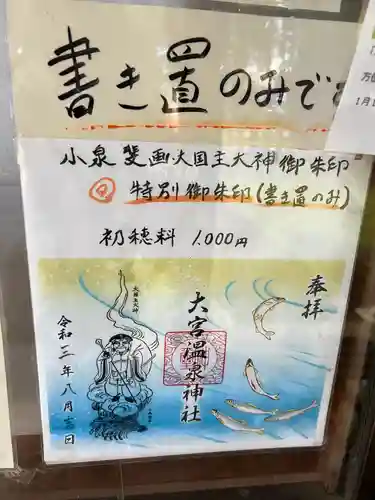 書き置のみです
小泉斐画大国主大神御朱印
特別御朱印(書き置のみ)
初穂料 1,000円
奉拝
大宮温泉神社
大国主大神
令和三年八月吉日